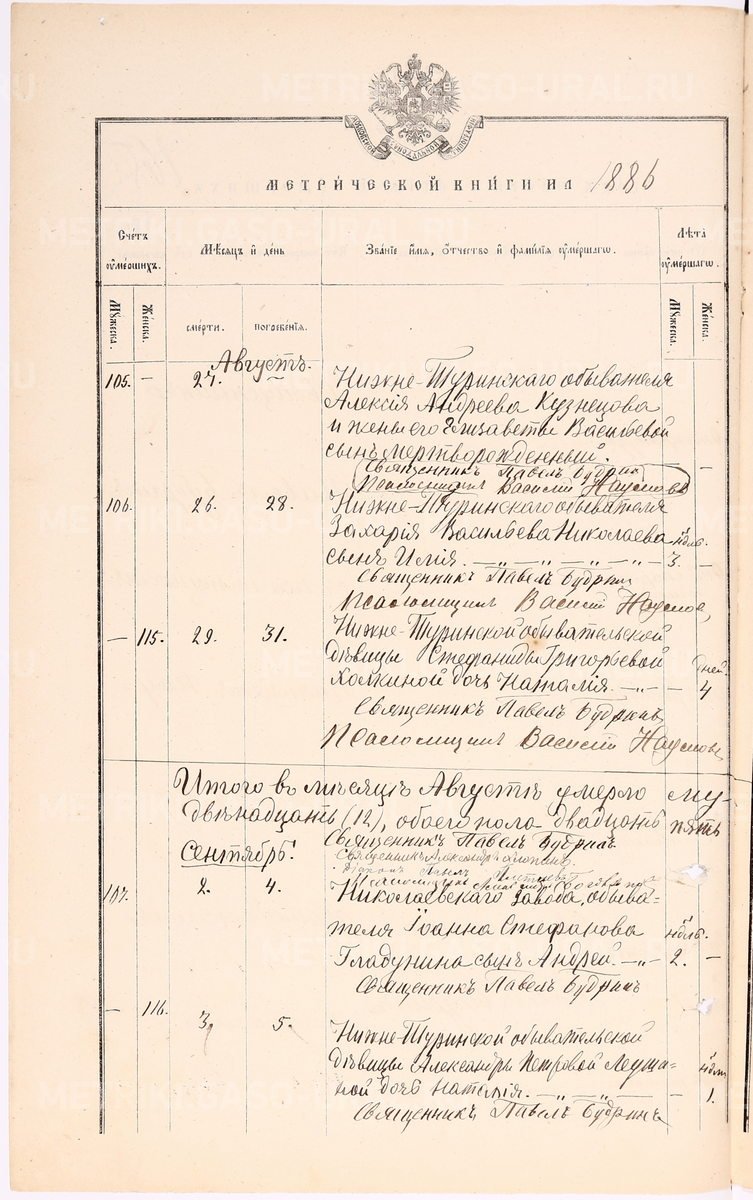 МЕТРИЧЕСКОЙ КНИГИ НА 1886
Счетъ умершихъ.
Мѣсяцъ и день
Званіе имя, отчество и фамилія умершаго.
Лѣта умершаго.
Мужеска.
Женска.
смерти.
погребенія.
Мужеска.
Женска.
Августъ.
105. — 27. Нижне-Туринскаго обывателя
Алексія Андреева Кузнецова
и жены его Елизаветы Васильевой
сынъ мертворожденный. —
Священникъ Павелъ Будринъ
Псаломщикъ Василій Наумовъ
106. 26. 28. Нижне-Туринскаго обывателя
Захарія Васильева Николаева нѣдль.
сынъ Илія. — „ — „ — „ — „ — 3. —
Священникъ Павелъ Будринъ
Псаломщикъ Василій Наумовъ
— 115. 29. 31. Нижне-Туринской обывательской
дѣвицы Стефаниды Григорьевой дней
Холкиной дочь Наталія. — „ — — 4
Священникъ Павелъ Будринъ
Псаломщикъ Василій Наумовъ
Итого въ мѣсяцѣ Августѣ умерло му-
двѣнадцать (12), обоего пола двадцать пять
Священникъ Павелъ Будринъ
Священникъ Александръ
Сентябрь.
107. 2. 4. Николаевскаго завода, обыва-
теля Іоанна Стефанова нѣдль.
Гладунина сынъ Андрей — „ — 2. —
Священникъ Павелъ Будринъ
— 116. 3. 5. Нижне-Туринской обывательской
дѣвицы Александры Петровой нѣдли
ной дочь Наталія. — „ — „ — — 1.
Священникъ Павелъ Будринъ